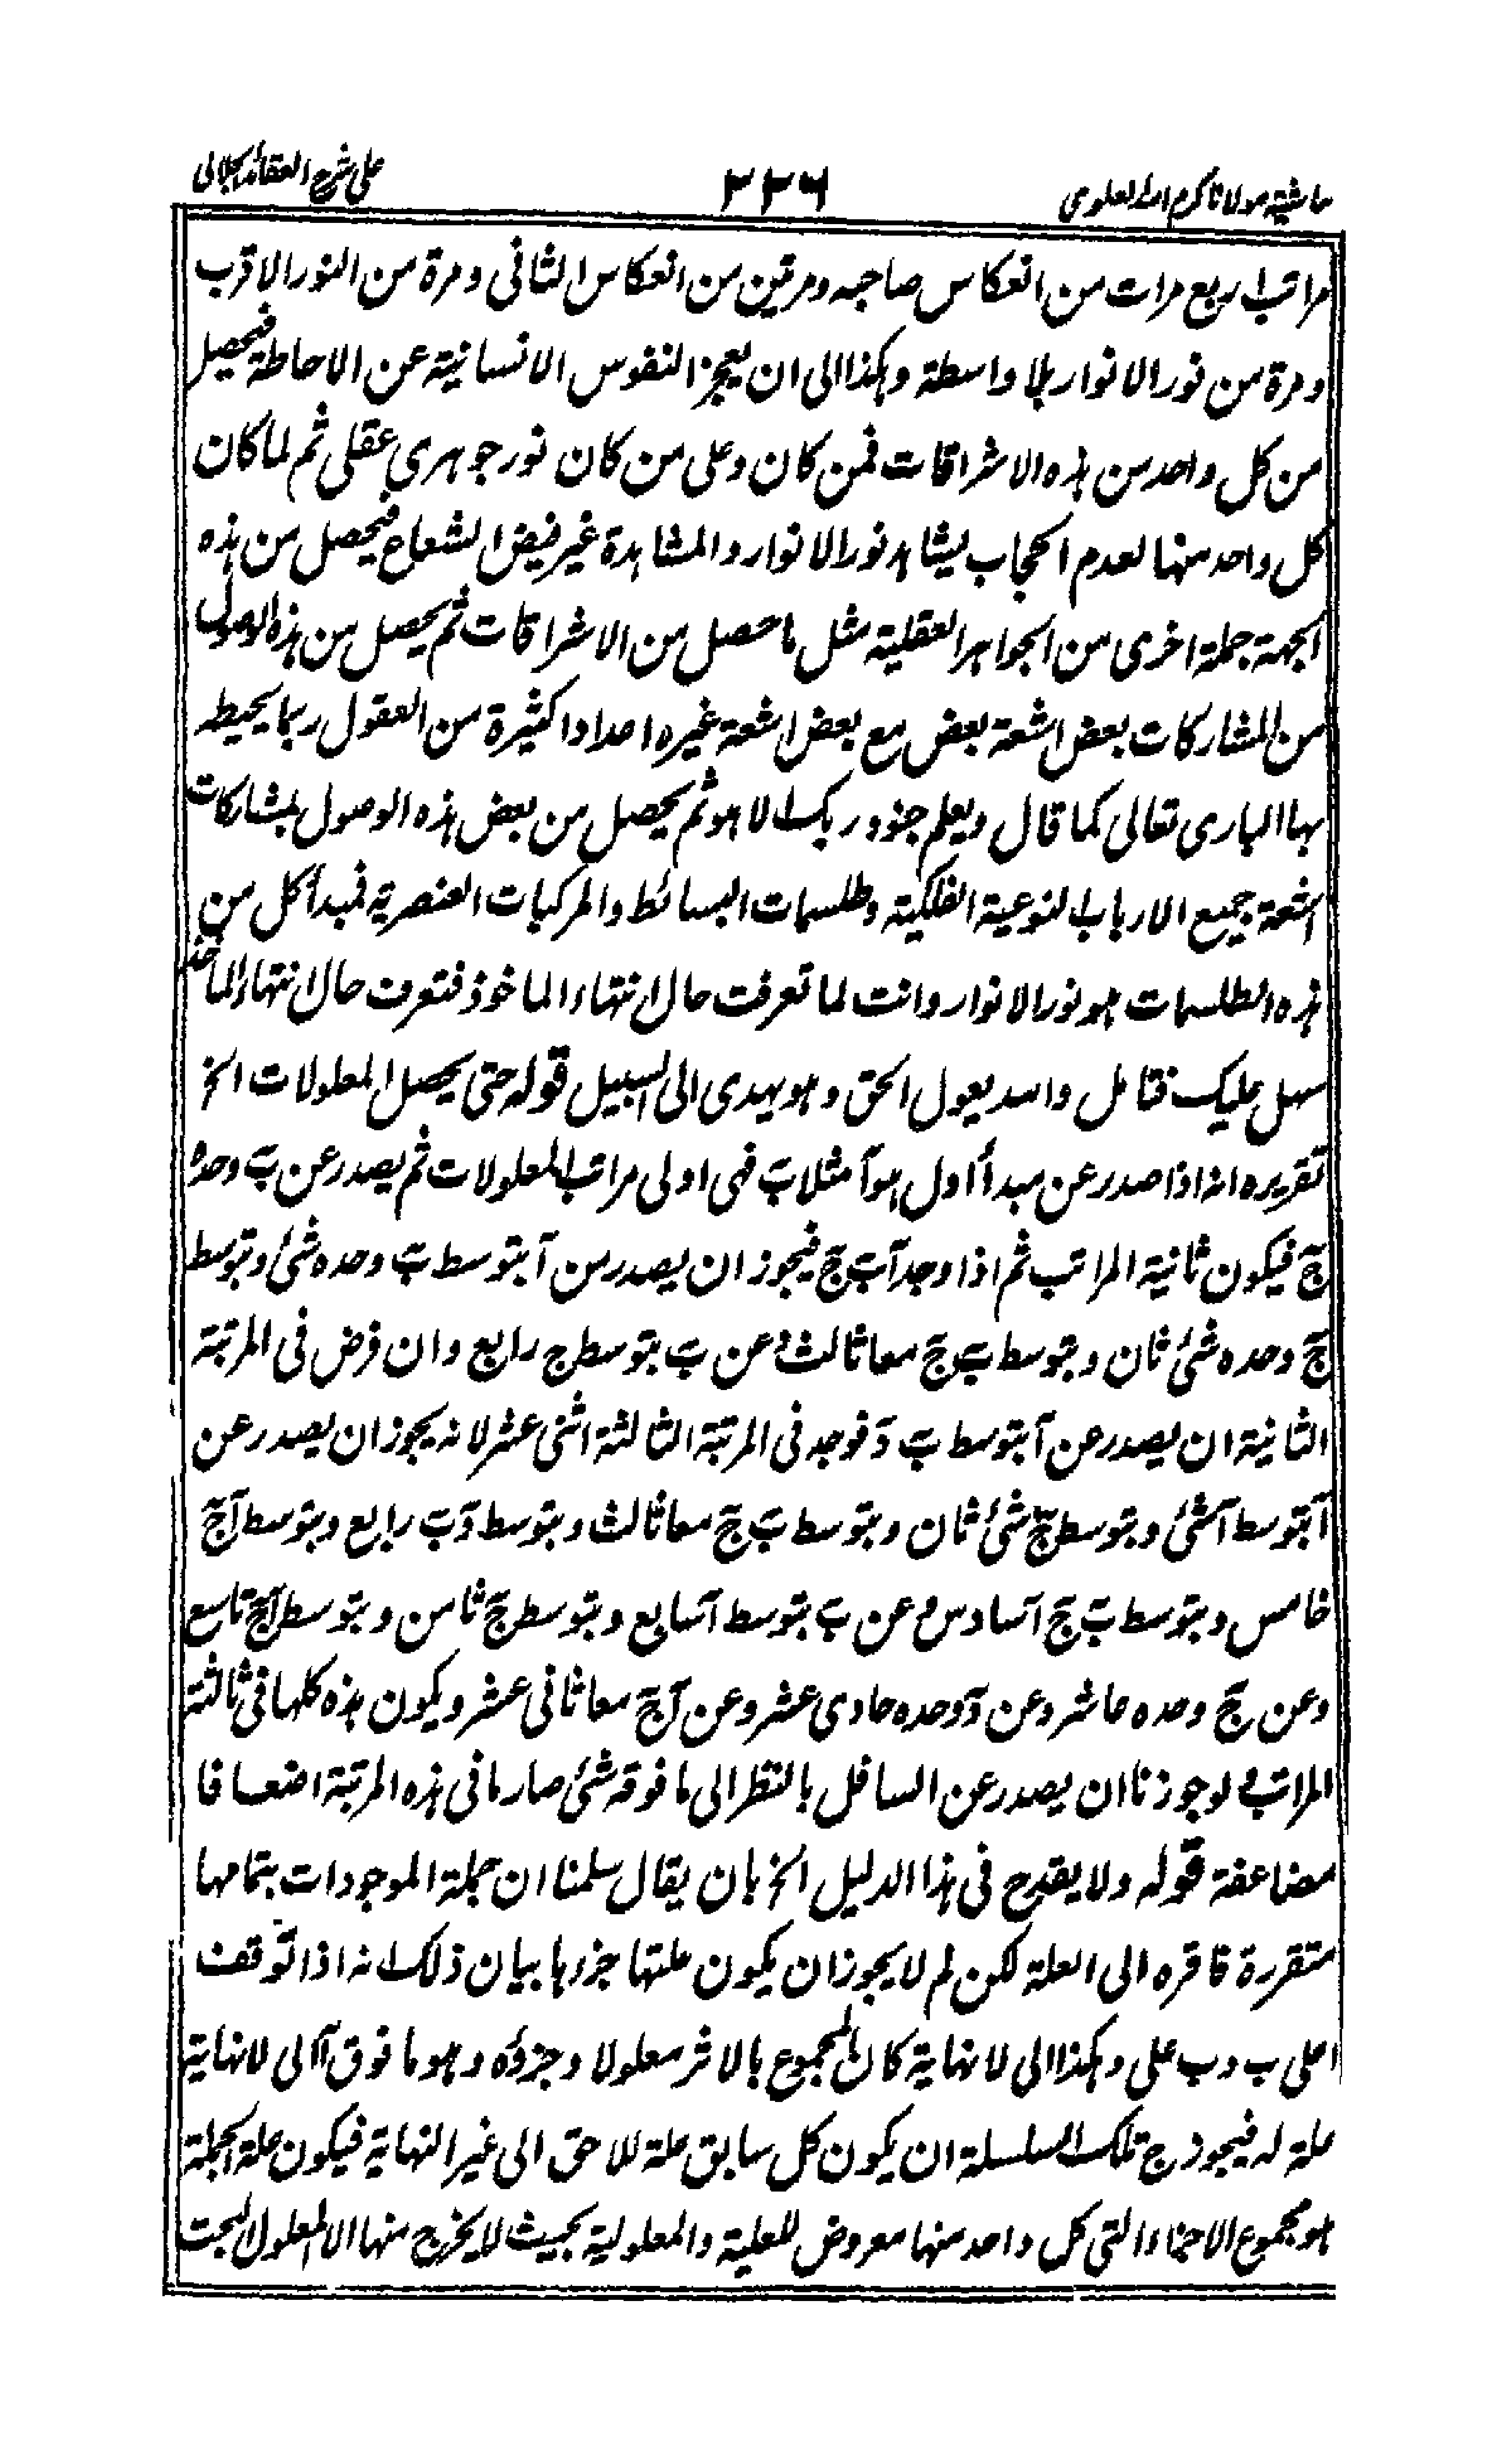 حاشية مولانا كرم الله العلوي
٣٣٦
على شرح العقائد الجلالي
مراتب اربع مرات من انعكاس صاحبه ومرتين من انعكاس الثاني ومرة من النور الاقرب
ومرة من نور الانوار بلا واسطة وهكذا الى ان يعجز النفوس الانسانية عن الاحاطة فيحصل
من كل واحد من هذه الاشراقات فمن كان وعلى من كان نور جوهري عقلي ثم لما كان
كل واحد منها لعدم الحجاب يشاهد نور الانوار والمشاهدة غير فيض الشعاع فيحصل من هذه
الجهة جملة اخرى من الجواهر العقلية مثل ما حصل من الاشراقات ثم يحصل من هذه الوصول
من المشاركات بعض اشعة بعض مع بعض اشعة غيره اعدادا كثيرة من العقول ربما يحيطه
بها الباري تعالى كما قال ويعلم جنود ربك الا هو ثم يحصل من بعض هذه الوصول بمشاركات
اشعة جميع الارباب النوعية الفلكية وطلسمات البسائط والمركبات العنصرية فمبدأ كل من
هذه الطلسمات هو نور الانوار وانت لما تعرفت حال انتهاء الماخوذ فتعرف حال انتهاء المآخذ
سهل عليك فتامل والله يعول الحق وهو يهدى الى السبيل قوله حتى يحصل المعلولات الخ
تقريره انه اذا صدر عن مبدأ اول هو آ مثلا بَ فهي اولى مراتب المعلولات ثم يصدر عن بَ وحده
جَ فيكون ثانية المراتب ثم اذا وجد آ بَ جَ فيجوز ان يصدر من آ بتوسط بَ وحده شئ وبتوسط
جَ وحده شئ ثان وبتوسط بَ جَ معا ثالث وعن بَ بتوسط ج رابع وان فرض في المرتبة
الثانية ان يصدر عن آ بتوسط بَ دَ فوجد في المرتبة الثالثة اثنى عشر لانه يجوز ان يصدر عن
آ بتوسط آ شئ وبتوسط جَ شئ ثان وبتوسط بَ جَ معا ثالث وبتوسط دَ بَ رابع وبتوسط آ جَ
خامس وبتوسط بَ جَ آ سادس وعن بَ بتوسط آ سابع وبتوسط جَ ثامن وبتوسط آ جَ تاسع
وعن جَ وحده عاشر وعن دَ وحده حادى عشر وعن آ جَ معا ثاني عشر ويكون هذه كلها في ثالثة
المراتب ولو جوزنا ان يصدر عن السافل بالنظر الى ما فوقه شئ صار ما في هذه المرتبة اضعافا
مضاعفة قوله ولا يقدح في هذا الدليل الخ بان يقال سلمنا ان جملة الموجودات بتمامها
متقررة فاقره الى العلة لكن لم لا يجوز ان يكون علتها جزءها بيان ذلك انه اذا توقف
ا على ب وب على وهكذا الى لا نهاية كان المجموع بالاثر معلولا وجزؤه وهو ما فوق آ الى لا نهاية
علة له فيجوز ج تلك السلسلة ان يكون كل سابق علة للاحق الى غير النهاية فيكون علة الجملة
هو مجموع الاجزاء التي كل واحد منها معروض للعلية والمعلولية بحيث لا يخرج منها الا المعلول البحت